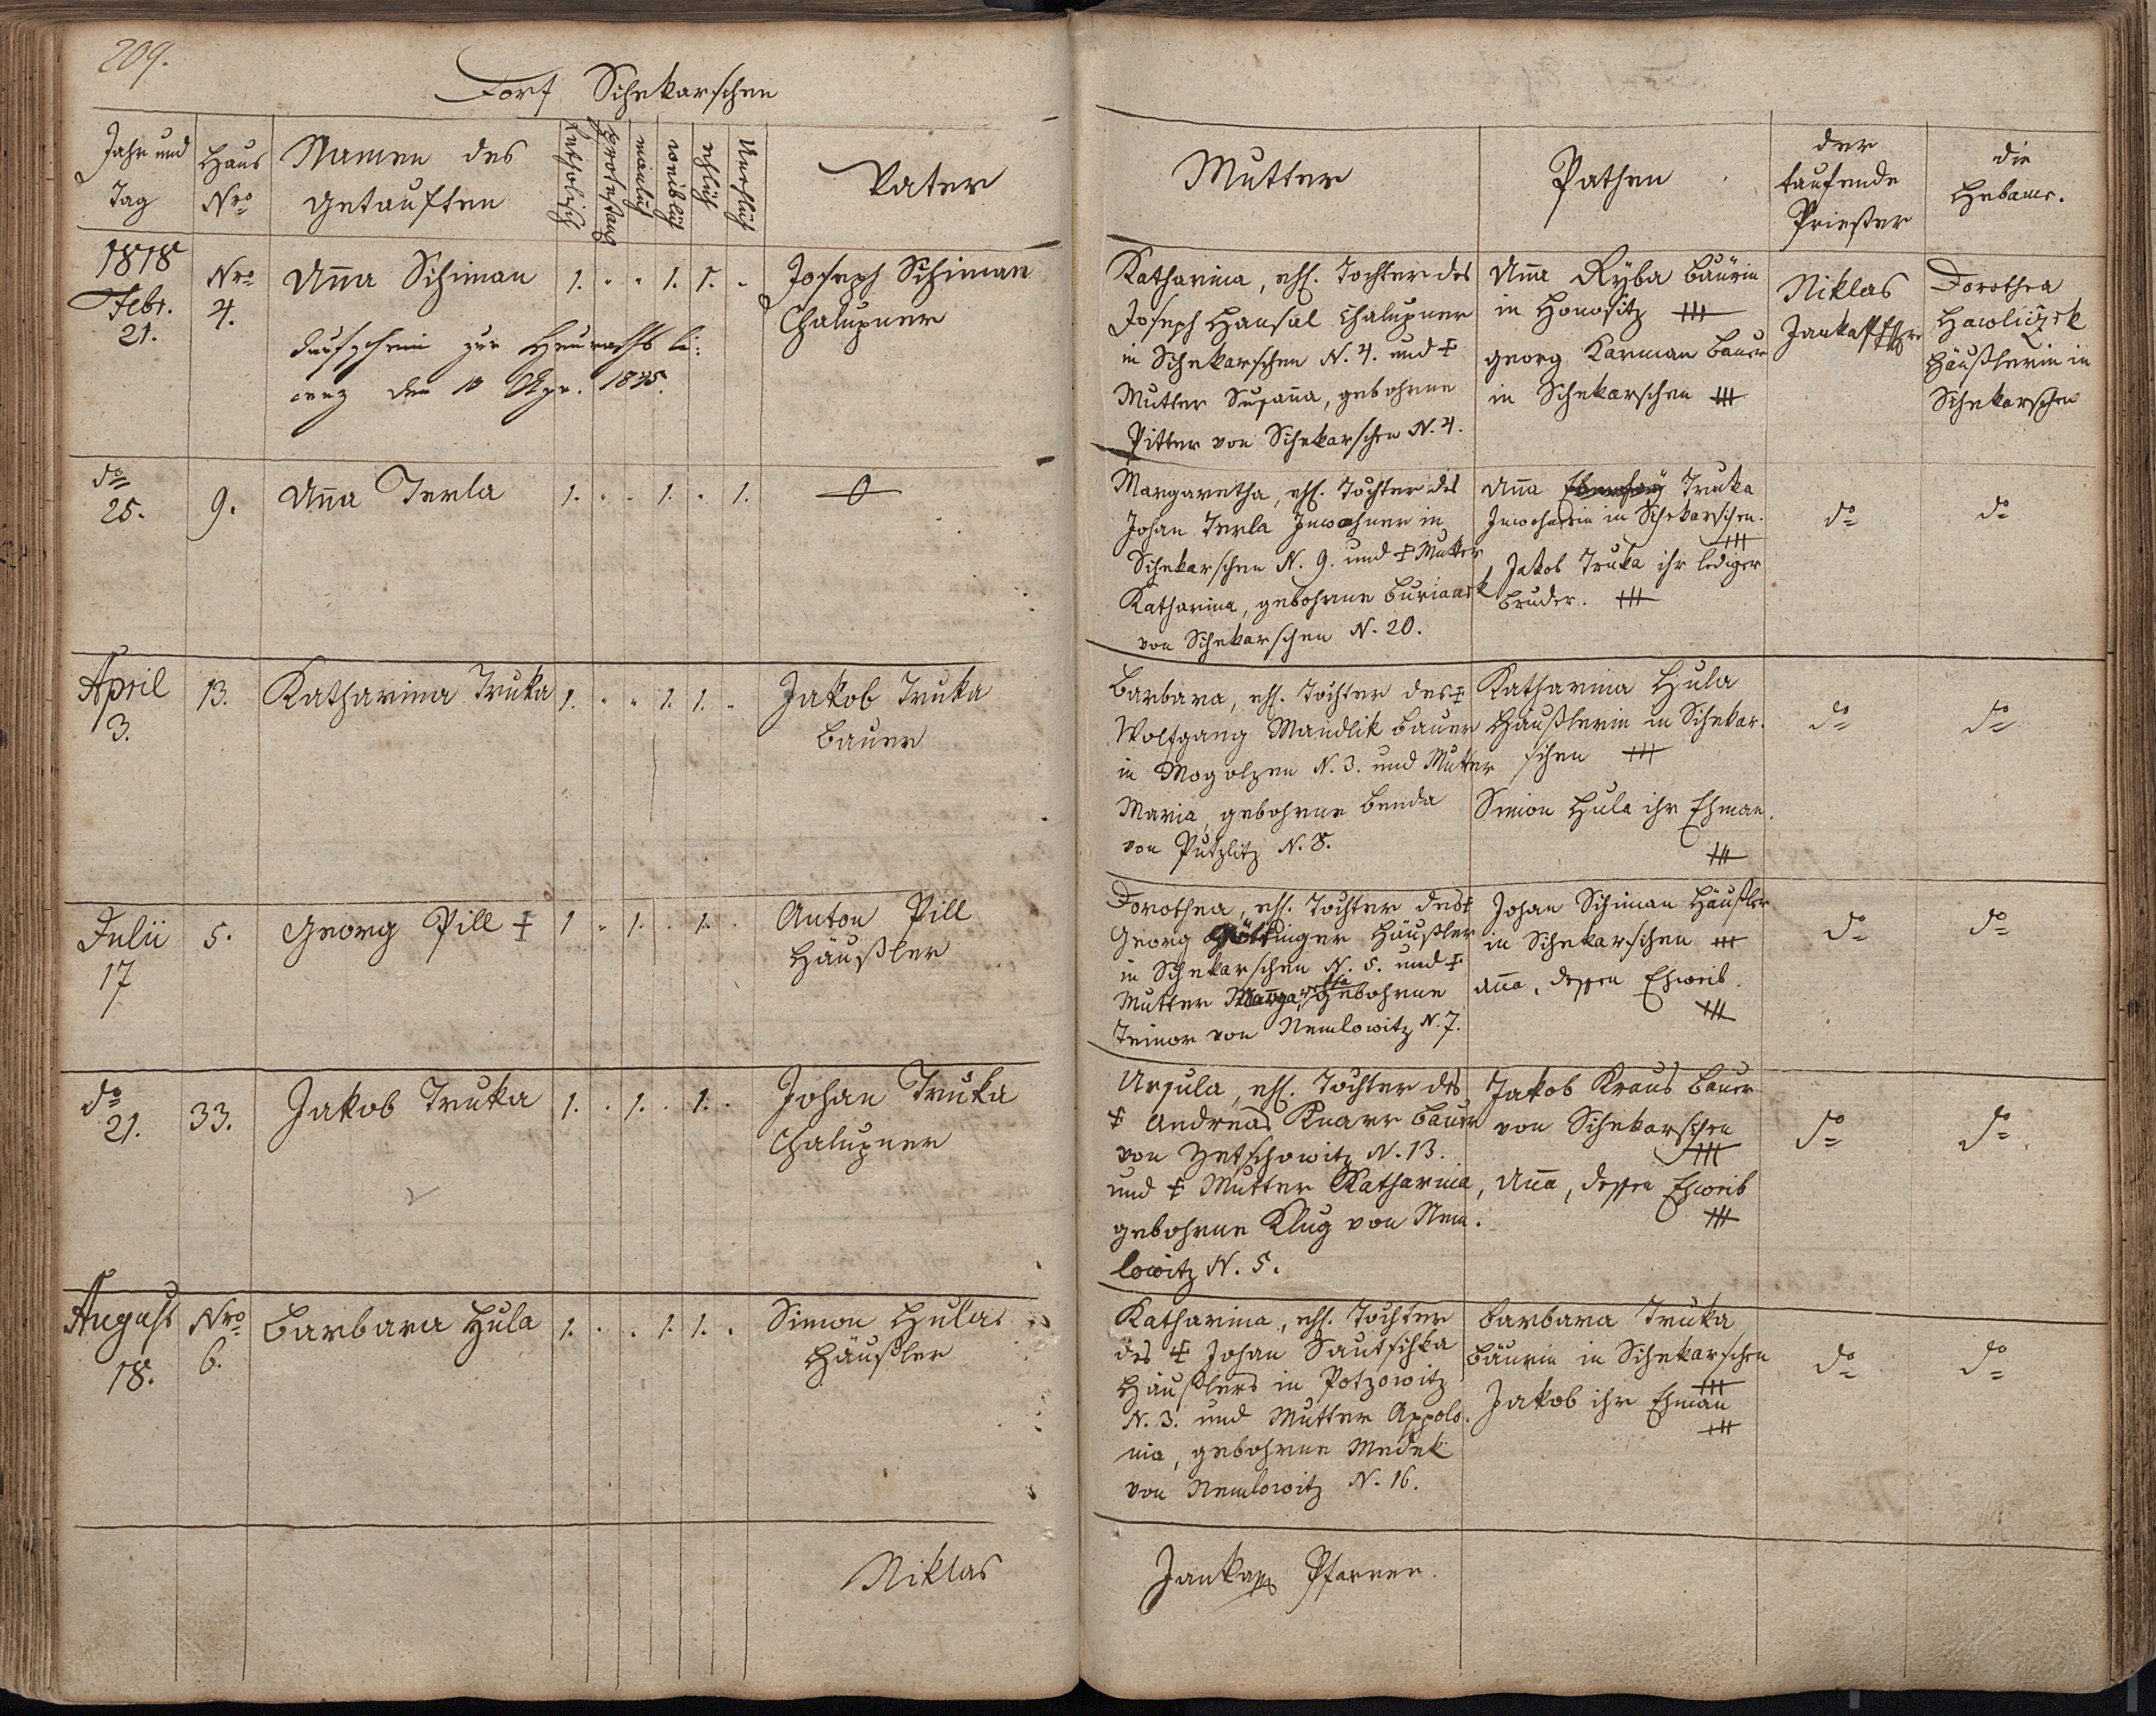 209.
Dorf Schekarschen
Jahr und Tag
Haus Nro
Namen des Getauften
Katholisch
Protestant
mänlich
weiblich
ehlich
Unehlich
Vater
Mutter
Pathen
der taufende Priester
die Hebame.
1818
Febr.
21.
Nro
4.
Anna Schiman
1. " " 1. 1. "
Taufschein zur Heuraths li=
cenz den 10 Apr. 1835.
Joseph Schiman
Chalupner
Katharina, ehl. Tochter des
Joseph Hansal Chalupner
in Schekarschen N. 4. und †
Mutter Susana, gebohrne
Pitter von Schekarschen N. 4.
Anna Ryba Bäurin
in Honositz +++
Georg Karman Bauer
in Schekarschen +++
Niklas
Janka
Dorothea
Hawliczek
Häußlerin in
Schekarschen
do
25.
9.
Anna Terla
1. " " 1. " 1.
0
Margaretha, ehl. Tochter des
Johan Terla Inwohner in
Schekarschen N. 9. und † Mutter
Katharina, gebohrne Burianek
von Schekarschen N. 20.
Anna Truka
Inwohnerin in Schekarschen.
+++
Jakob Truka ihr lediger
Bruder. +++
do
do
April
3.
13.
Katharina Truka
1. " " 1. 1. "
Jakob Truka
Bauer
Barbara, ehl. Tochter des †
Wolfgang Mandlik Bauer
in Mogolzen N. 3. und Mutter
Maria, gebohrne Benda
von Putzlitz N. 8.
Katharina Hula
Häußlerin in Schekar.
schen +++
Simon Hula ihr Ehman.
+++
do
do
Julii
17
5.
Georg Pill †
1 " 1. . 1. .
Anton Pill
Häußler
Dorothea, ehl. Tochter des †
Georg Göttinger Häußler
in Schekarschen N. 5. und †
Mutter Margaretha, gebohrne
Teinor von Nemlowitz N. 7.
Johan Schiman Häußler
in Schekarschen +++
Anna, dessen Ehweib.
+++
do
do
do
21.
33.
Jakob Truka
1. . 1. . 1. .
Johan Truka
Chalupner
Ursula, ehl. Tochter des
† Andreas Knarr Bauer
von Zetschowitz N. 13.
und † Mutter Katharina,
gebohrne Klug von Nem.
lowitz N. 5.
Jakob Kraus Bauer
von Schekarschen
+++
Anna, dessen Ehweib
+++
do
do
August
18.
Nro
6.
Barbara Hula
1. . . 1. 1. .
Simon Hula
Häußler
Katharina, ehl. Tochter
des † Johan Sautschka
Häußlers in Potzowitz
N. 3. und Mutter Appolo.
nia, gebohrne Medek
von Nemlowitz N. 16.
Barbara Truka
Bäurin in Schekarschen
+++
Jakob ihr Ehman
+++
do
do
Niklas
Janka Pfarrer.